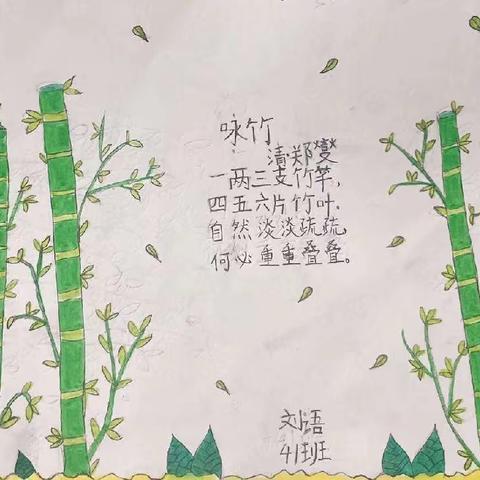 咏竹
清·郑燮
一两三支竹竿，
四五六片竹叶、
自然淡淡疏疏，
何必重重叠叠。
刘语
41班